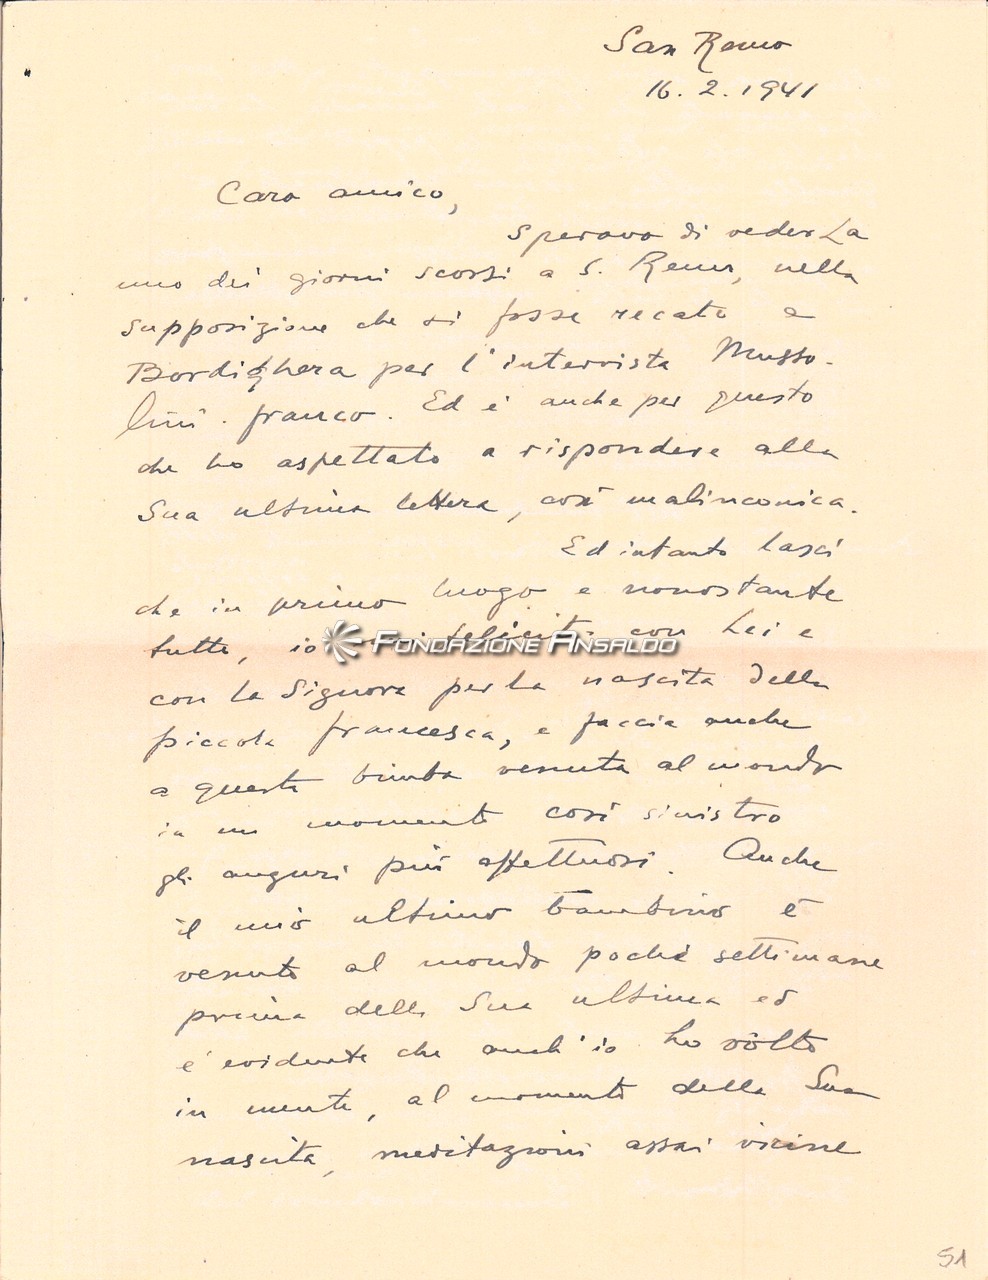 San Remo
16.2.1941
Caro amico,
speravo di vederLa
uno dei giorni scorsi a S. Remo, nella
supposizione che si fosse recato a
Bordighera per l'intervista Musso-
lini-Franco. Ed è anche per questo
che ho aspettato a rispondere alla
Sua ultima lettera, così malinconica.
Ed intanto lasci
che in primo luogo e nonostante
tutto, io mi feliciti con Lei e
FONDAZIONE ANSALDO
con la Signora per la nascita della
piccola Francesca, e faccia anche
a questa bimba venuta al mondo
in un momento così sinistro
gli auguri più affettuosi. Anche
il mio ultimo bambino è
venuto al mondo poche settimane
prima della Sua ultima ed
è evidente che anch'io ho vòlto
in mente, al momento della Sua
nascita, meditazioni assai vicine
51